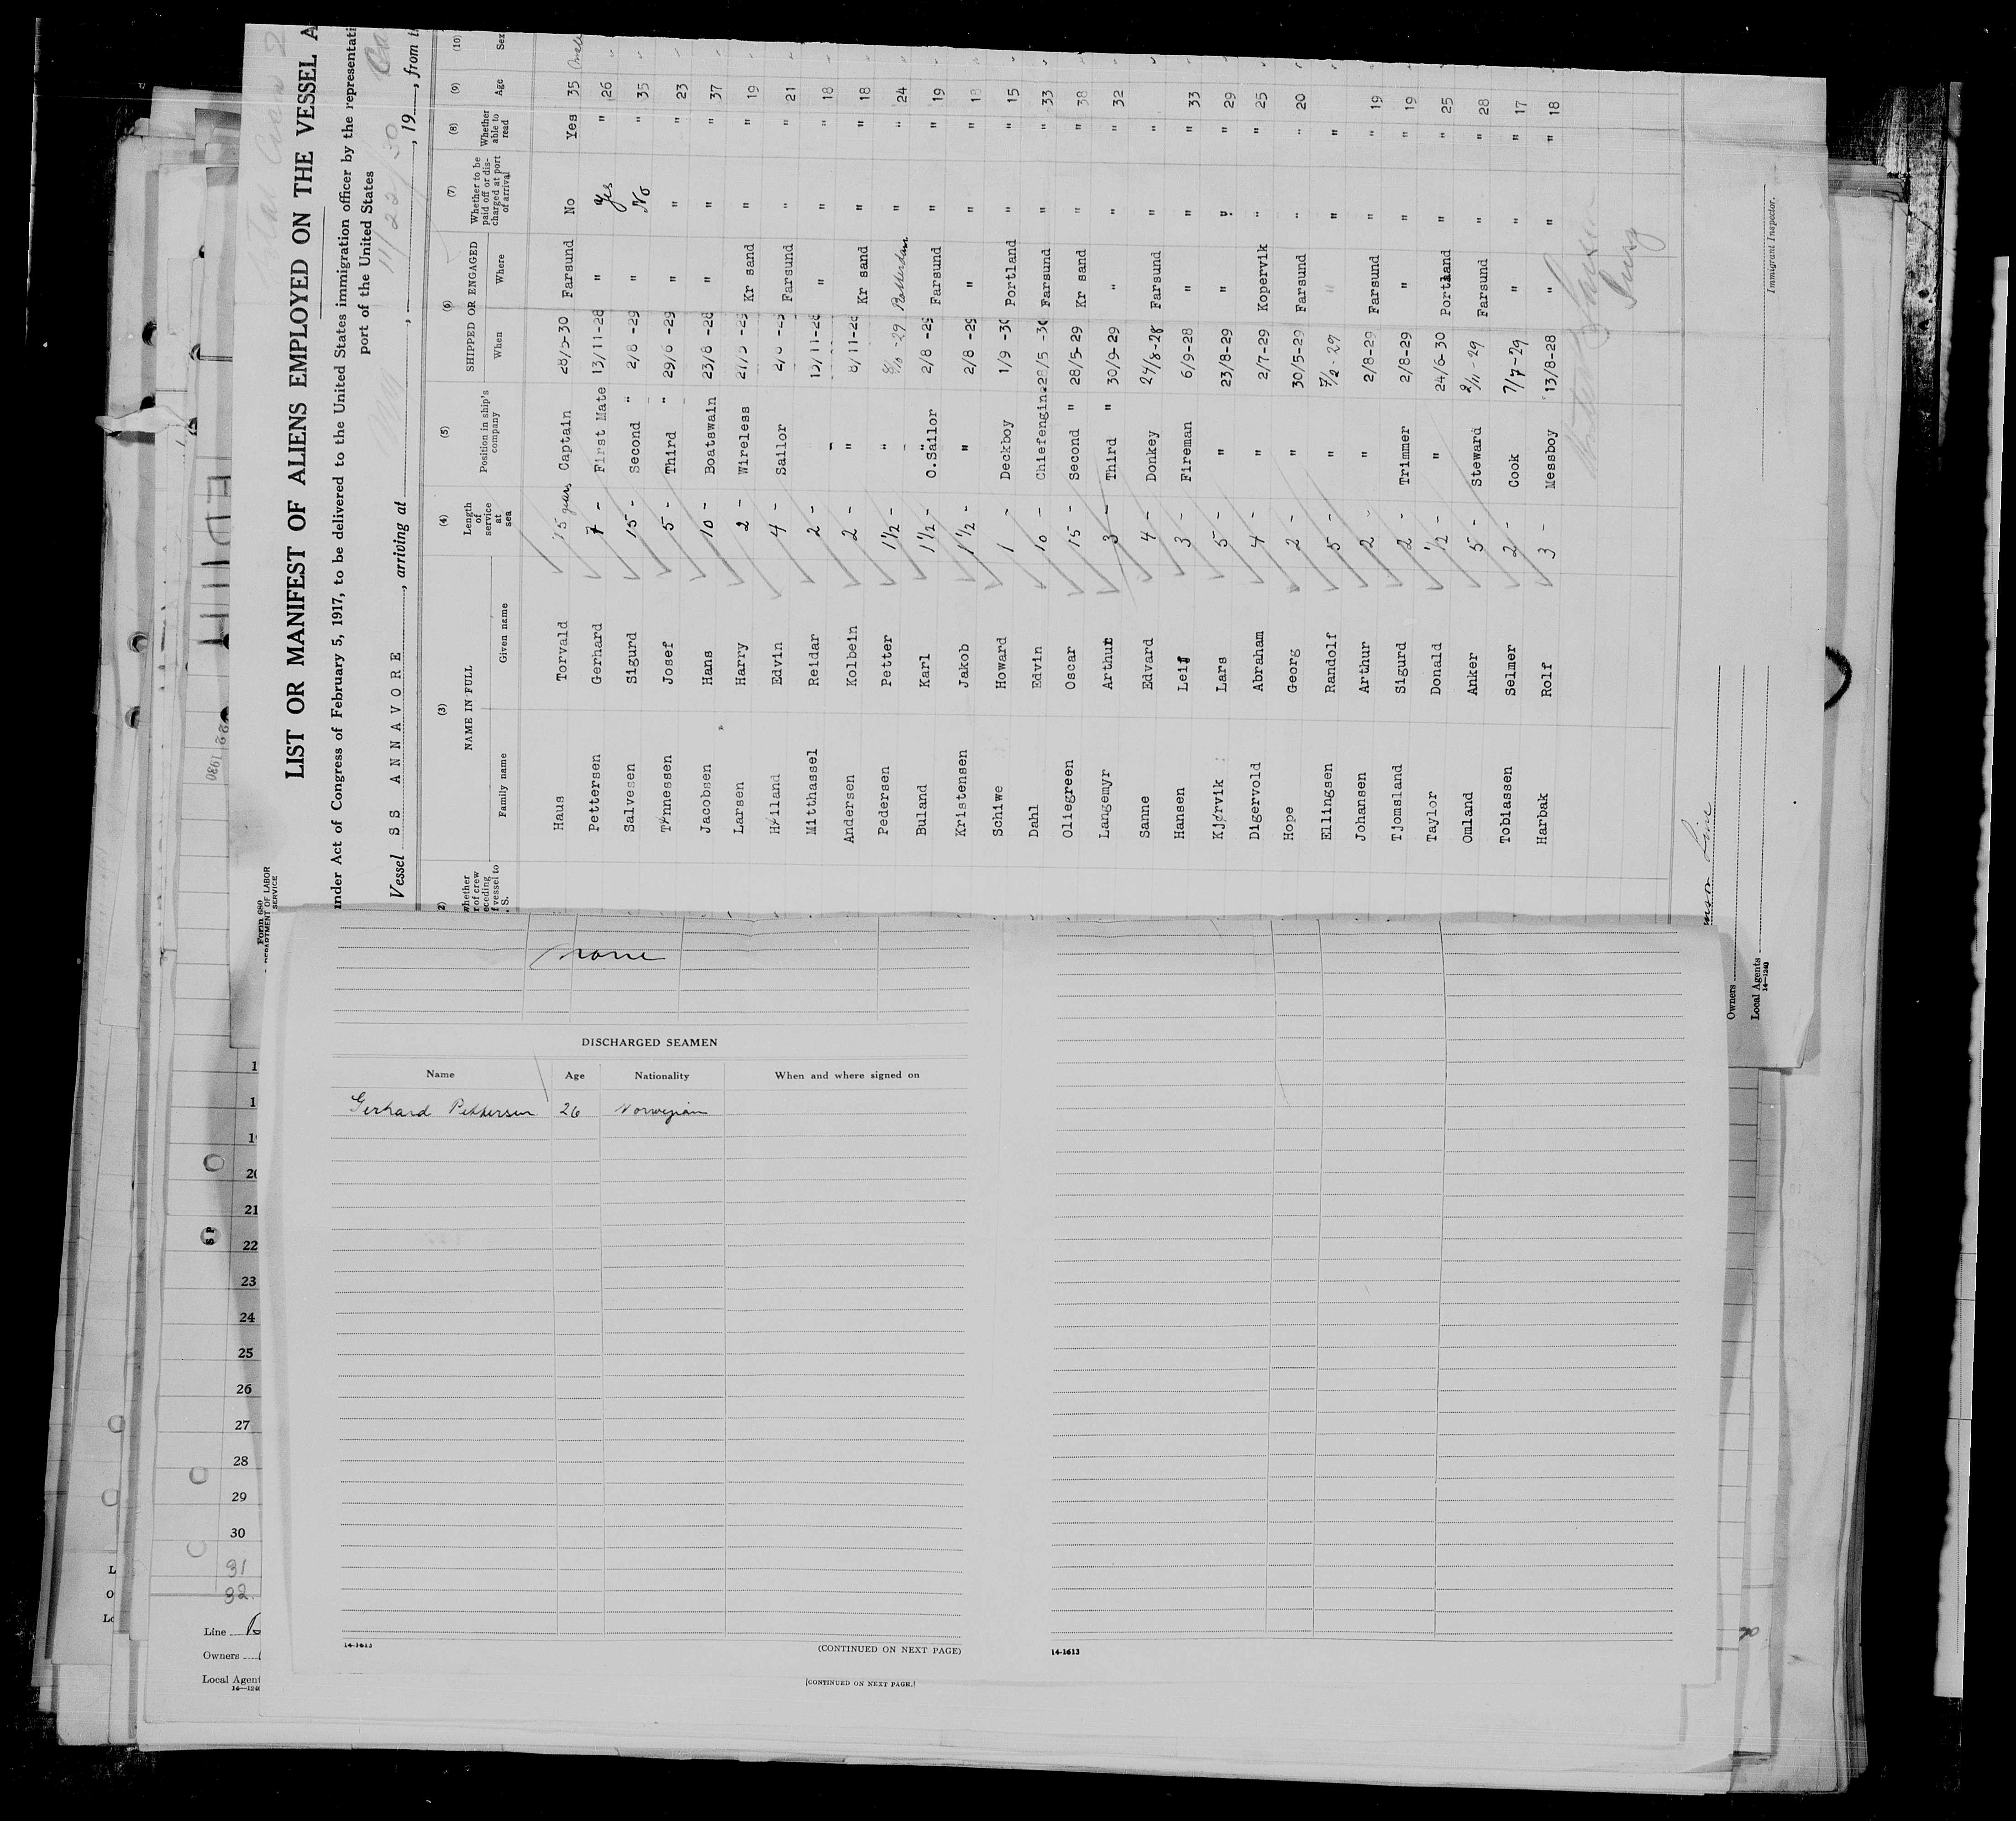 Form 680
DEPARTMENT OF LABOR
SERVICE
LIST OR MANIFEST OF ALIENS EMPLOYED ON THE VESSEL A
under Act of Congress of February 5, 1917, to be delivered to the United States immigration officer by the representati
port of the United States
Vessel SS ANNAVORE, arriving at , 11/22/30, 19 , from t
(3) (4) (5) (6) (7) (8) (9) (10)
NAME IN FULL Length of service at sea Position in ship's company SHIPPED OR ENGAGED Whether to be paid off or discharged at port of arrival Whether able to read Age Sex
Family name Given name When Where
Haus Torvald 15 years Captain 28/5-30 Farsund No Yes 35
Pettersen Gerhard 7 - First Mate 13/11-28 " Yes " 26
Salvesen Sigurd 15 - Second " 2/8 -29 " No " 35
Tønnessen Josef 5 - Third " 29/6 -29 " " " 23
Jacobsen Hans 10 - Boatswain 23/8 -28 " " " 37
Larsen Harry 2 - Wireless Kr sand " " 19
Høiland Edvin 4 - Sailor Farsund " " 21
Mitthassel Reidar 2 - " " " 18
Andersen Kolbein 2 - " 8/11-28 Kr sand " " 18
Pedersen Petter 1 1/2 - " -29 Rotterdam " " 24
Buland Karl 1 1/2 - O.Sailor 2/8 -29 Farsund " " 19
Kristensen Jakob 1 1/2 - " 2/8 -29 " " " 18
Schiwe Howard 1 - Deckboy 1/9 -30 Portland " " 15
Dahl Edvin 10 - Chiefengine 28/5 -30 Farsund " " 33
Oliegreen Oscar 15 - Second " 28/5-29 Kr sand " " 38
Langemyr Arthur 3 - Third " 30/9-29 " " " 32
Sanne Edvard 4 - Donkey 24/8-28 Farsund " "
Hansen Leif 3 - Fireman 6/9-28 " " " 33
Kjørvik Lars 5 - " 23/8-29 " " " 29
Digervold Abraham 4 - " 2/7-29 Kopervik " " 25
Hope Georg 2 - " 30/5-29 Farsund " " 20
Ellingsen Randolf 5 - " 7/2-29 " " "
Johansen Arthur 2 - " 2/8-29 Farsund " " 19
Tjomsland Sigurd 2 - Trimmer 2/8-29 " " " 19
Taylor Donald 1/2 - " 24/6-30 Portland " " 25
Omland Anker 5 - Steward 2/11-29 Farsund " " 28
Tobiassen Selmer 2 - Cook 7/7-29 " " " 17
Harbak Rolf 3 - Messboy 13/8-28 " " " 18
Immigrant Inspector.
Line
Owners
Local Agents
14-1240
none
DISCHARGED SEAMEN
Name Age Nationality When and where signed on
Gerhard Pettersen 26 Norwegian
14-1613
(CONTINUED ON NEXT PAGE)
14-1613
[CONTINUED ON NEXT PAGE.]
20
21
22
23
24
25
26
27
28
29
30
31
32
Line
Owners
Local Agent
SP